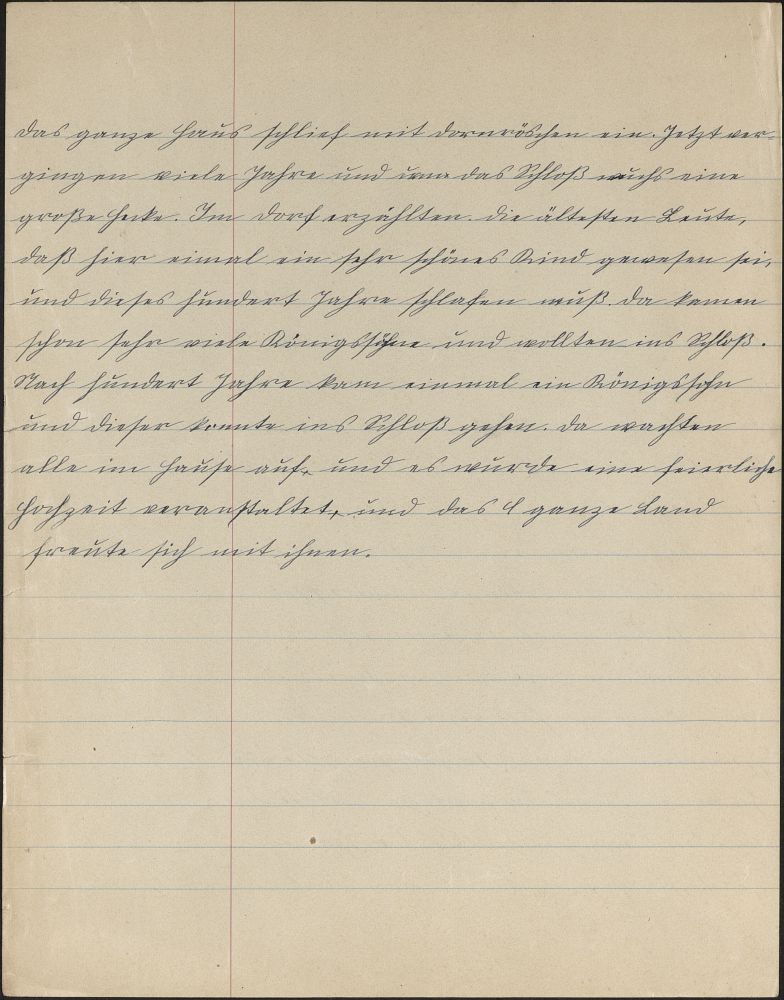 das ganze Haus schlief mit Dornröschen ein. Jetzt ver-
gingen viele Jahre und um das Schloß wuchs eine
große Hecke. Im Dorf erzählten die ältesten Leute,
daß hier eimal ein sehr schönes Kind gewesen sei,
und dieses hundert Jahre schlafen muß. Da kamen
schon sehr viele Königssöhne und wollten ins Schloß.
Nach hundert Jahre kam einmal ein Königssohn
und dieser konnte ins Schloß gehen. Da wachten
alle im Hause auf, und es wurde eine feierliche
Hochzeit veranstaltet, und das ganze Land
freute sich mit ihnen.